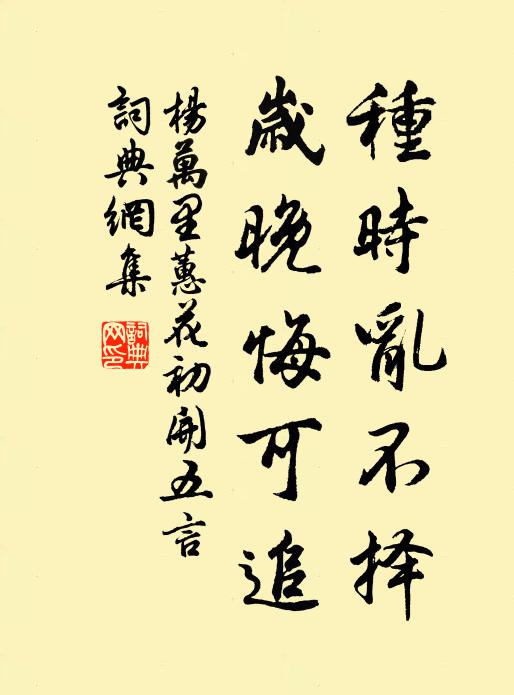 種時亂不择
歲晚悔可追
楊萬里蕙花初開五言
詞典網集
詞典
网印